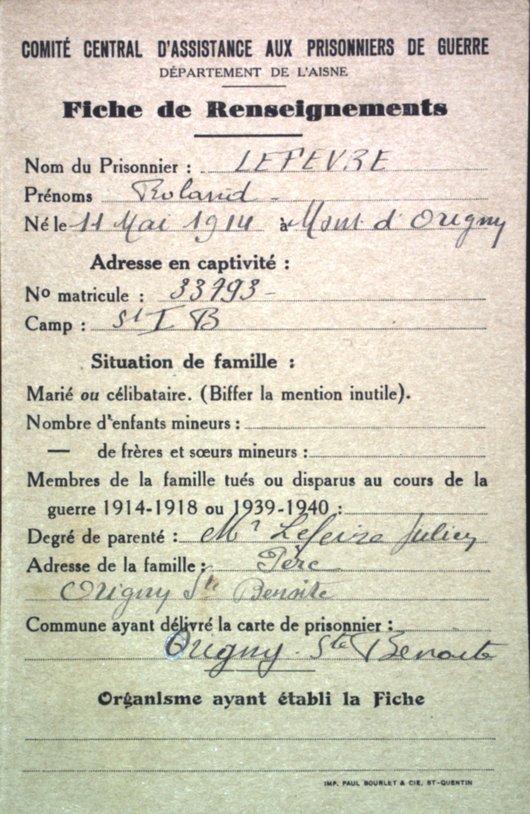 COMITÉ CENTRAL D'ASSISTANCE AUX PRISONNIERS DE GUERRE
DÉPARTEMENT DE L'AISNE
Fiche de Renseignements
Nom du Prisonnier : LEFEVRE
Prénoms Roland
Né le 11 Mai 1914 à Mont d'Origny
Adresse en captivité :
No matricule : 33793
Camp : St I B
Situation de famille :
Marié ou célibataire. (Biffer la mention inutile).
Nombre d'enfants mineurs :
— de frères et sœurs mineurs :
Membres de la famille tués ou disparus au cours de la
guerre 1914-1918 ou 1939-1940 :
Degré de parenté : Mr Lefevre Julien
Adresse de la famille : Père
Origny Ste Benoite
Commune ayant délivré la carte de prisonnier :
Origny - Ste Benoite
Organisme ayant établi la Fiche
IMP. PAUL BOURLET & CIE, ST-QUENTIN